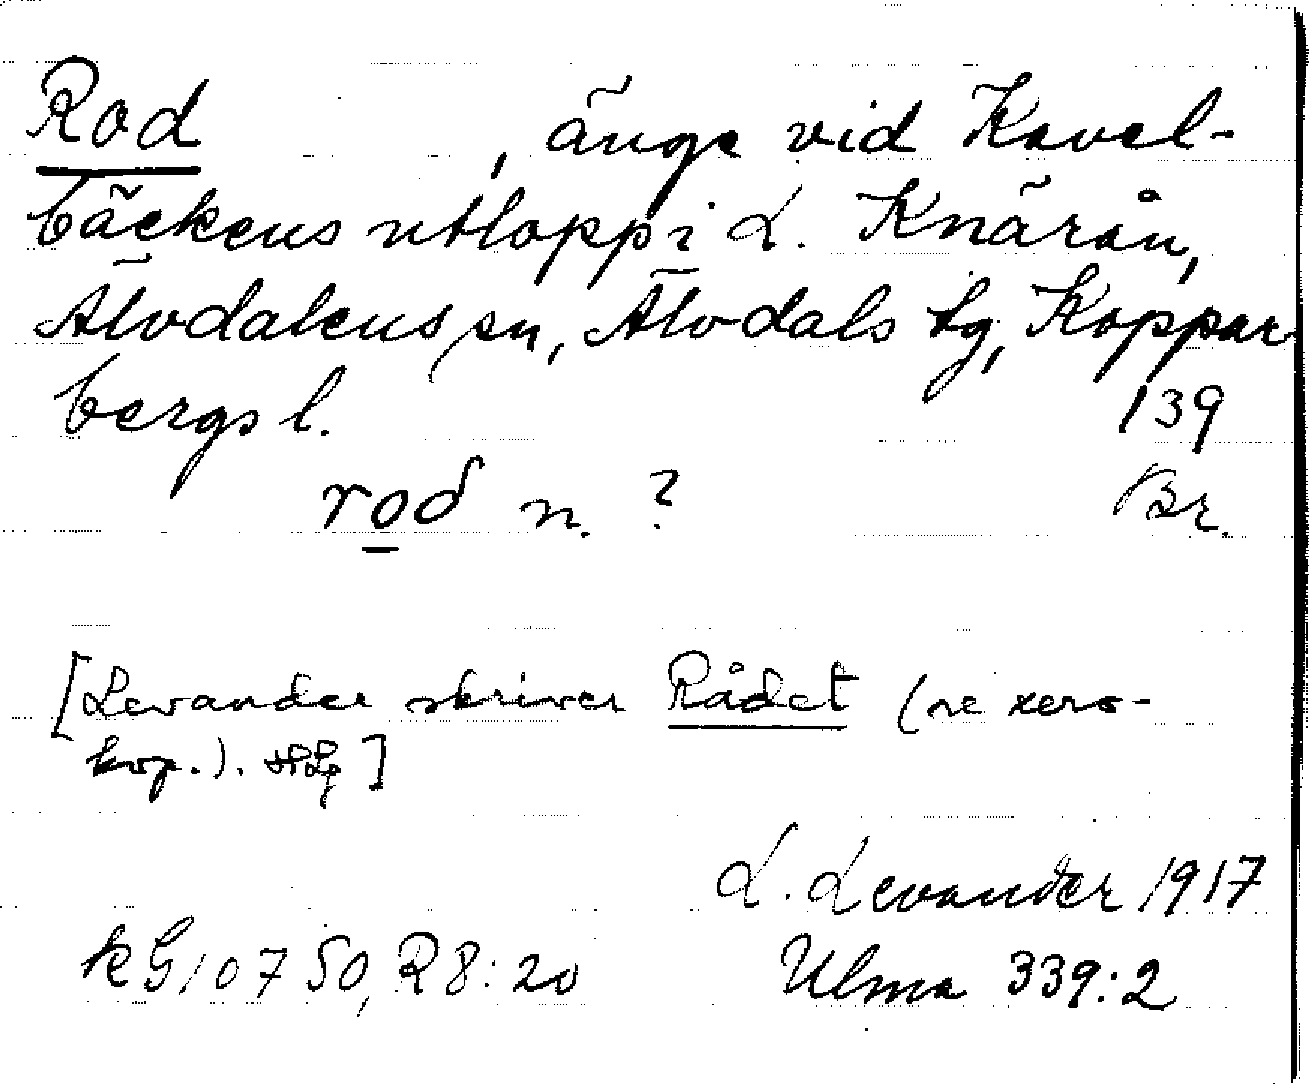 Rod , änge vid Kavel-
bäckens utlopp i L. Knärån,
Älvdalens sn, Älvdals tg, Koppar
bergs l. 139
rod n. ? Br.
[Levander skriver Rådet (se xero-
kop.). ]
L. Levander 1917
kG10750, R8:20 Ulma 339:2